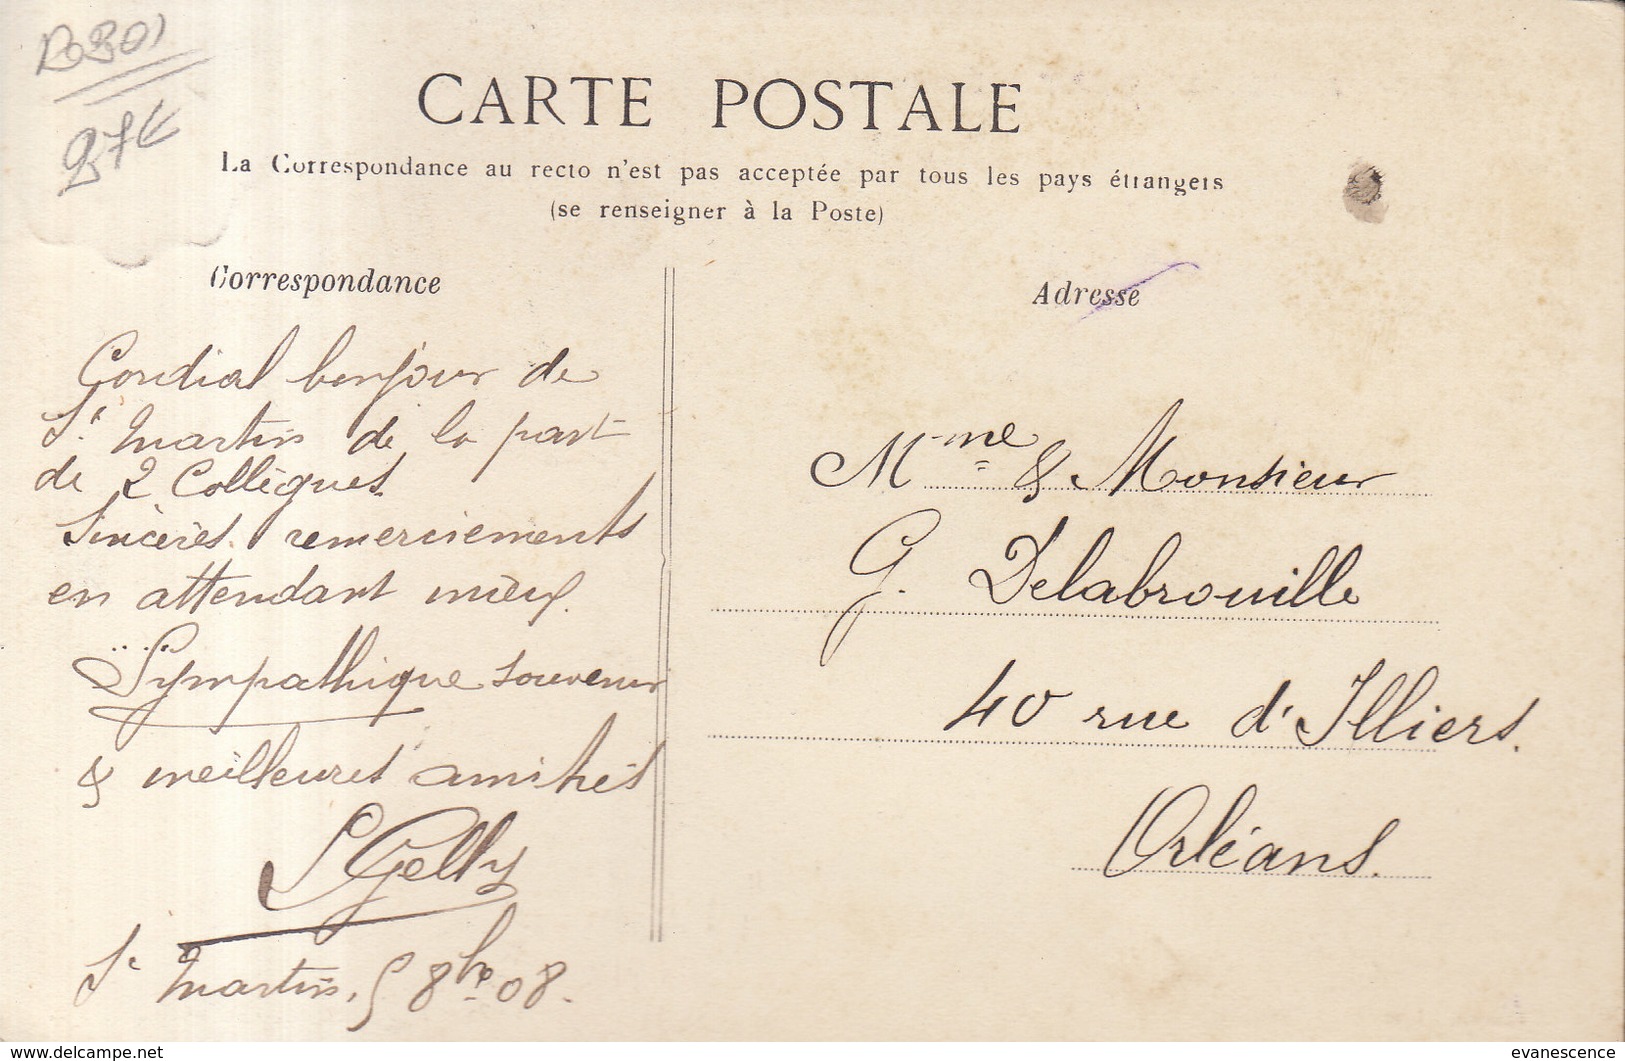 27€
CARTE POSTALE
La Correspondance au recto n'est pas acceptée par tous les pays étrangers
(se renseigner à la Poste)
Correspondance
Cordial bonjour de
St Martin de la part
de 2 Collègues
Sincères remerciements
en attendant mieux.
Sympathique souvenir
& meilleures amitiés
L Gelly
St Martin, 5 8bre 08.
Adresse
Mme & Monsieur
G. Delabrouille
40 rue d'Illiers.
Orléans.
www.delcampe.net
evanescence